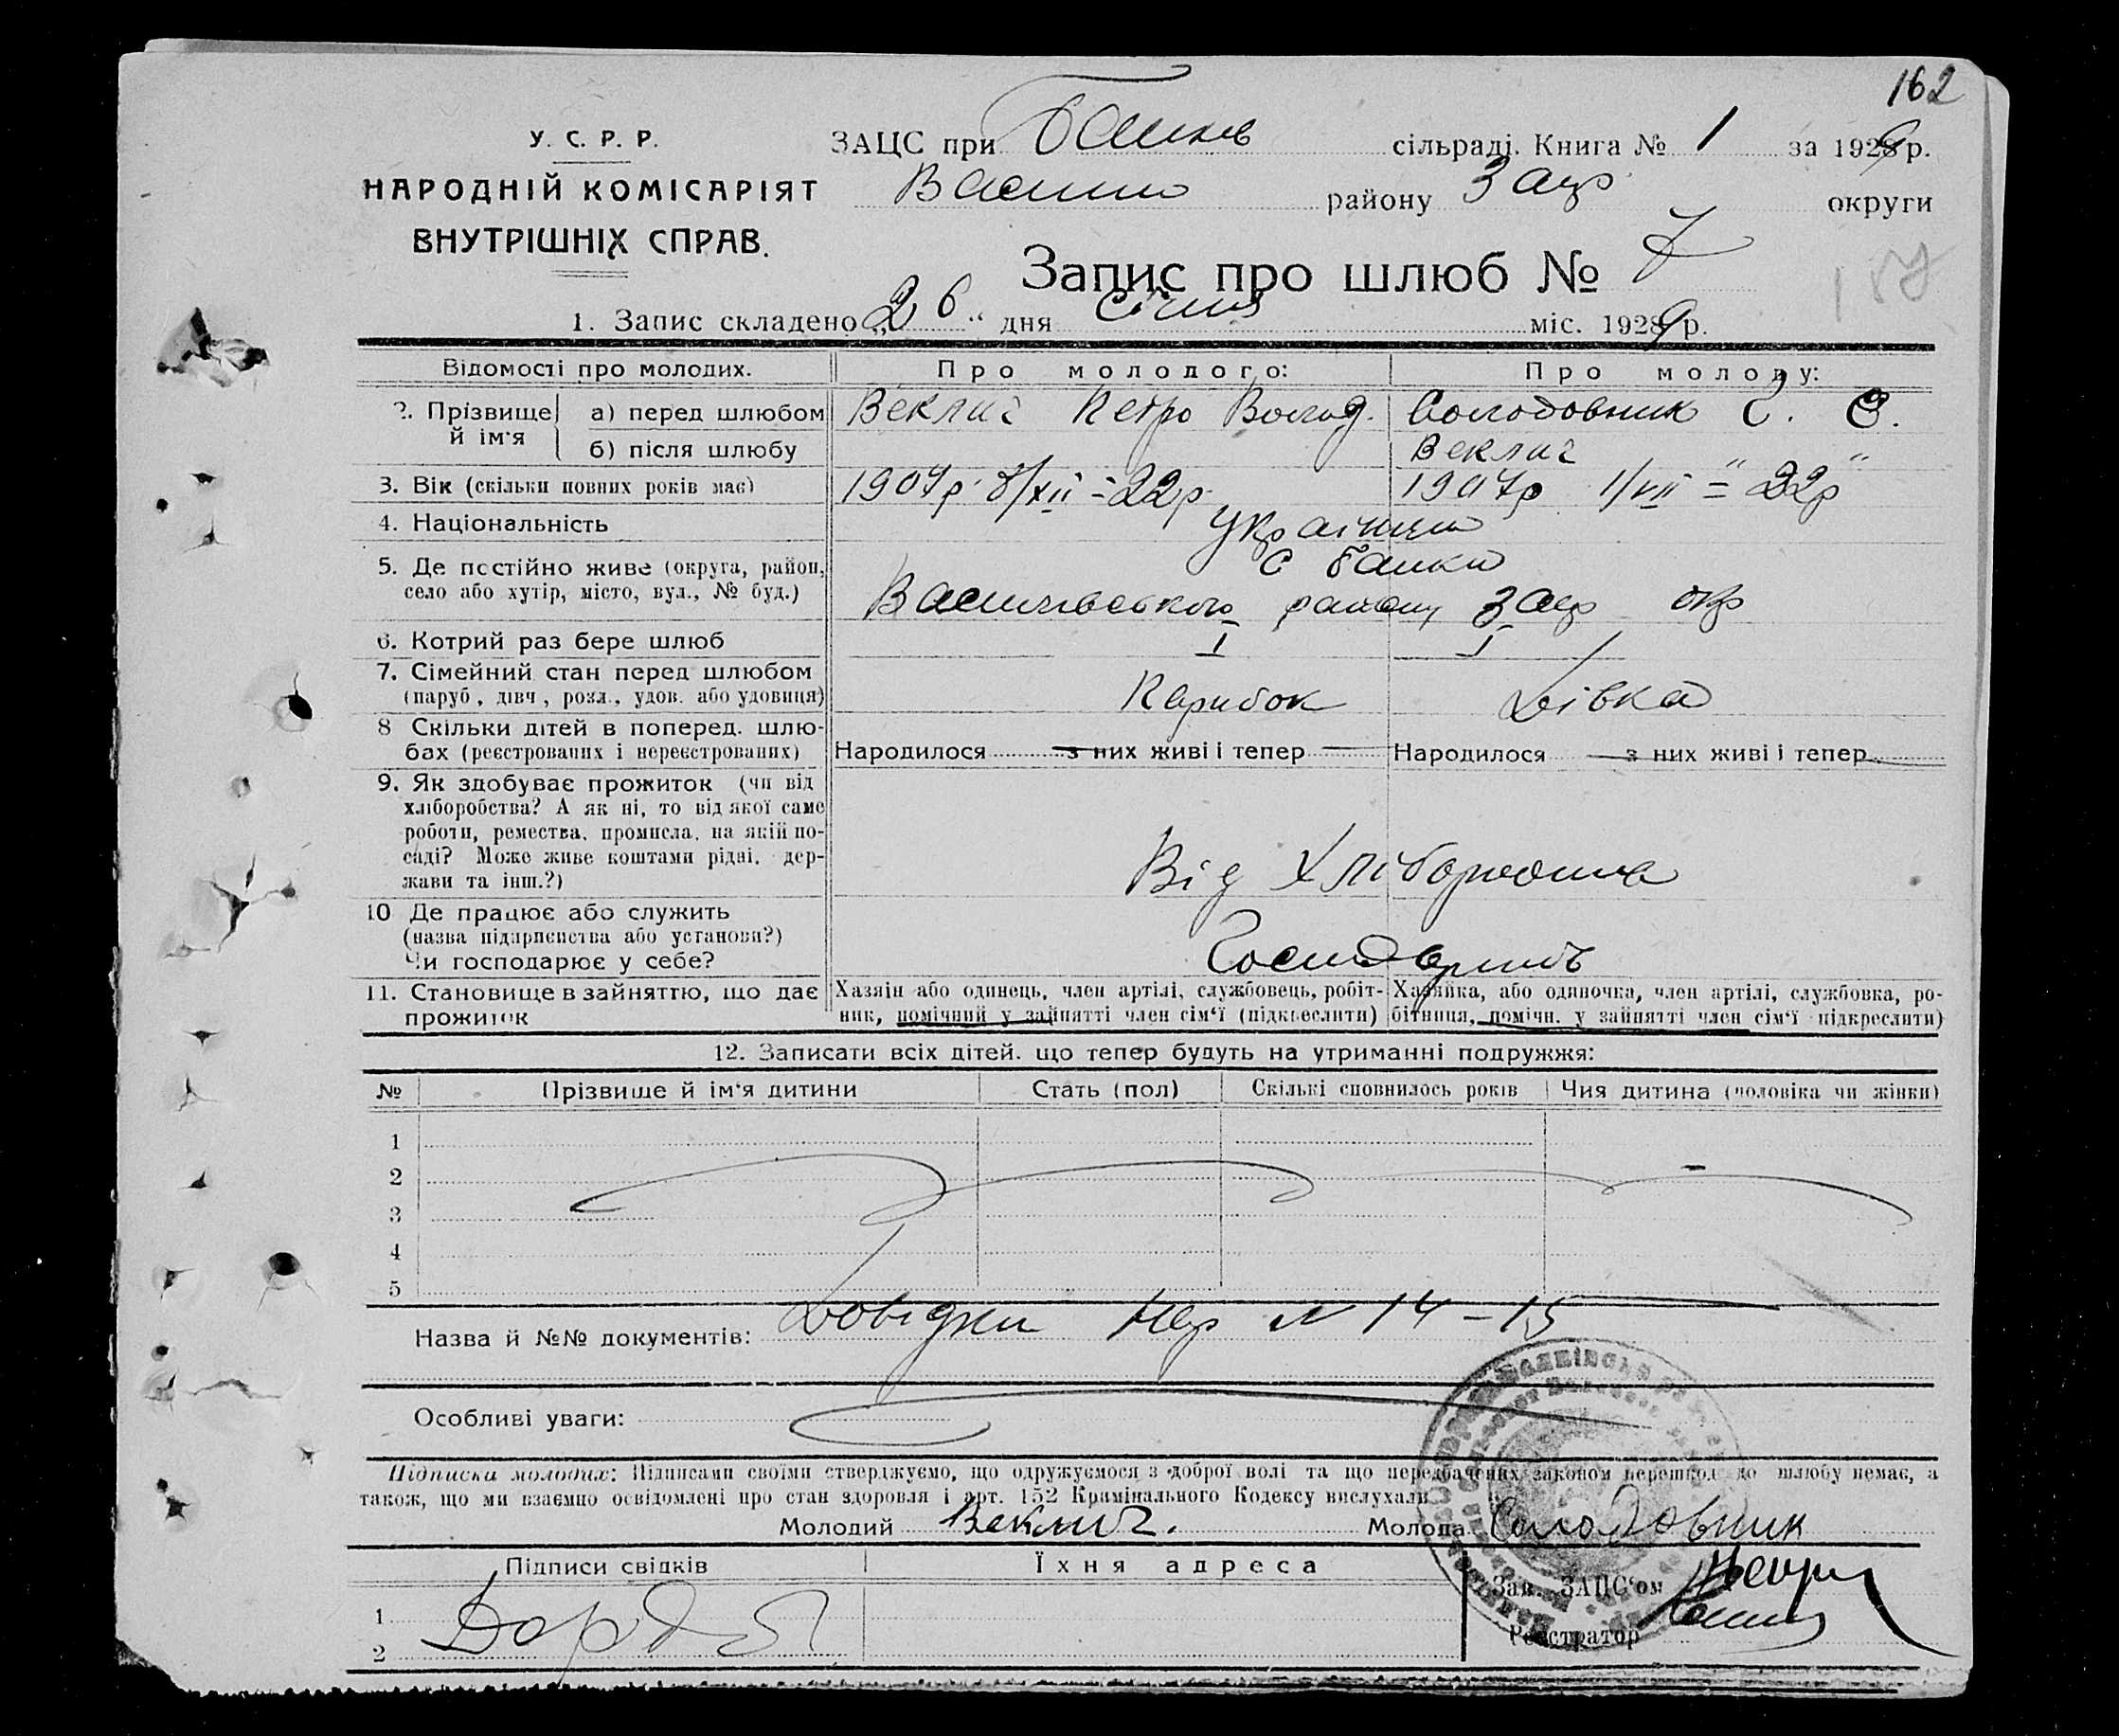 162
У. С. Р. Р.
НАРОДНІЙ КОМІСАРІЯТ
ВНУТРІШНІХ СПРАВ.
ЗАЦС при Балків сільраді. Книга № 1 за 1929 р.
Васил району Запр округи
Запис про шлюб № 7
157
1. Запис складено „26“ дня січня міс. 1929 р.
Відомості про молодих. Про молодого: Про молоду:
2. Прізвище й ім'я а) перед шлюбом Веклич Петро Волод. Солодовник Є. Є.
б) після шлюбу Веклич " "
3. Вік (скільки повних років має) 1907р 8/XII = 22р 1907р 1/VII = 22р
4. Національність українці
5. Де постійно живе (округа, район, село або хутір, місто, вул., № буд.) с Балки
Василівського району Запр окр
6. Котрий раз бере шлюб I I
7. Сімейний стан перед шлюбом Парубок Дівка
(паруб, дівч, розл., удов. або удовиця)
8 Скільки дітей в поперед. шлю-
бах (реєстрованих і нереєстрованих) Народилося з них живі і тепер Народилося з них живі і тепер
9. Як здобуває прожиток (чи від
хліборобства? А як ні, то від якої саме
роботи, ремества, промисла, на якій по-
саді? Може живе коштами рідні, дер- Від хліборобства
жави та інш.?)
10 Де працює або служить
(назва підприєнства або установи?)
Чи господарює у себе?
11. Становище в зайняттю, що дає Хазяїн або одинець, член артілі, службовець, робіт- Хазяйка, або одиночка, член артілі, службовка, ро-
прожиток ник, помічний у зайнятті член сім'ї (підкреслити) бітниця, помічн. у зайнятті член сім'ї підкреслити)
12. Записати всіх дітей. що тепер будуть на утриманні подружжя:
№ Прізвище й ім'я дитини Стать (пол) Скількі сповнилось років Чия дитина (чоловіка чи жінки)
1
2
3
4
5
Назва й №№ документів: Довідки № 14-15
Особливі уваги:
Підписка молодих: Підписами своїми стверджуємо, що одружуємося з доброї волі та що передбачених законом перешкод до шлюбу немає, а
також, що ми взаємно освідомлені про стан здоровля і арт. 152 Кримінального Кодексу вислухали
Молодий Веклич. Молода Солодовник
Підписи свідків Їхня адреса
Зав. ЗАЦС'ом
1
2
Реєстратор